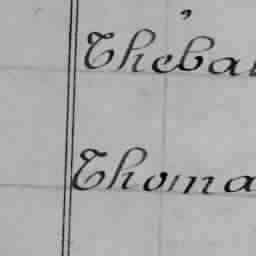 Theba
Thoma